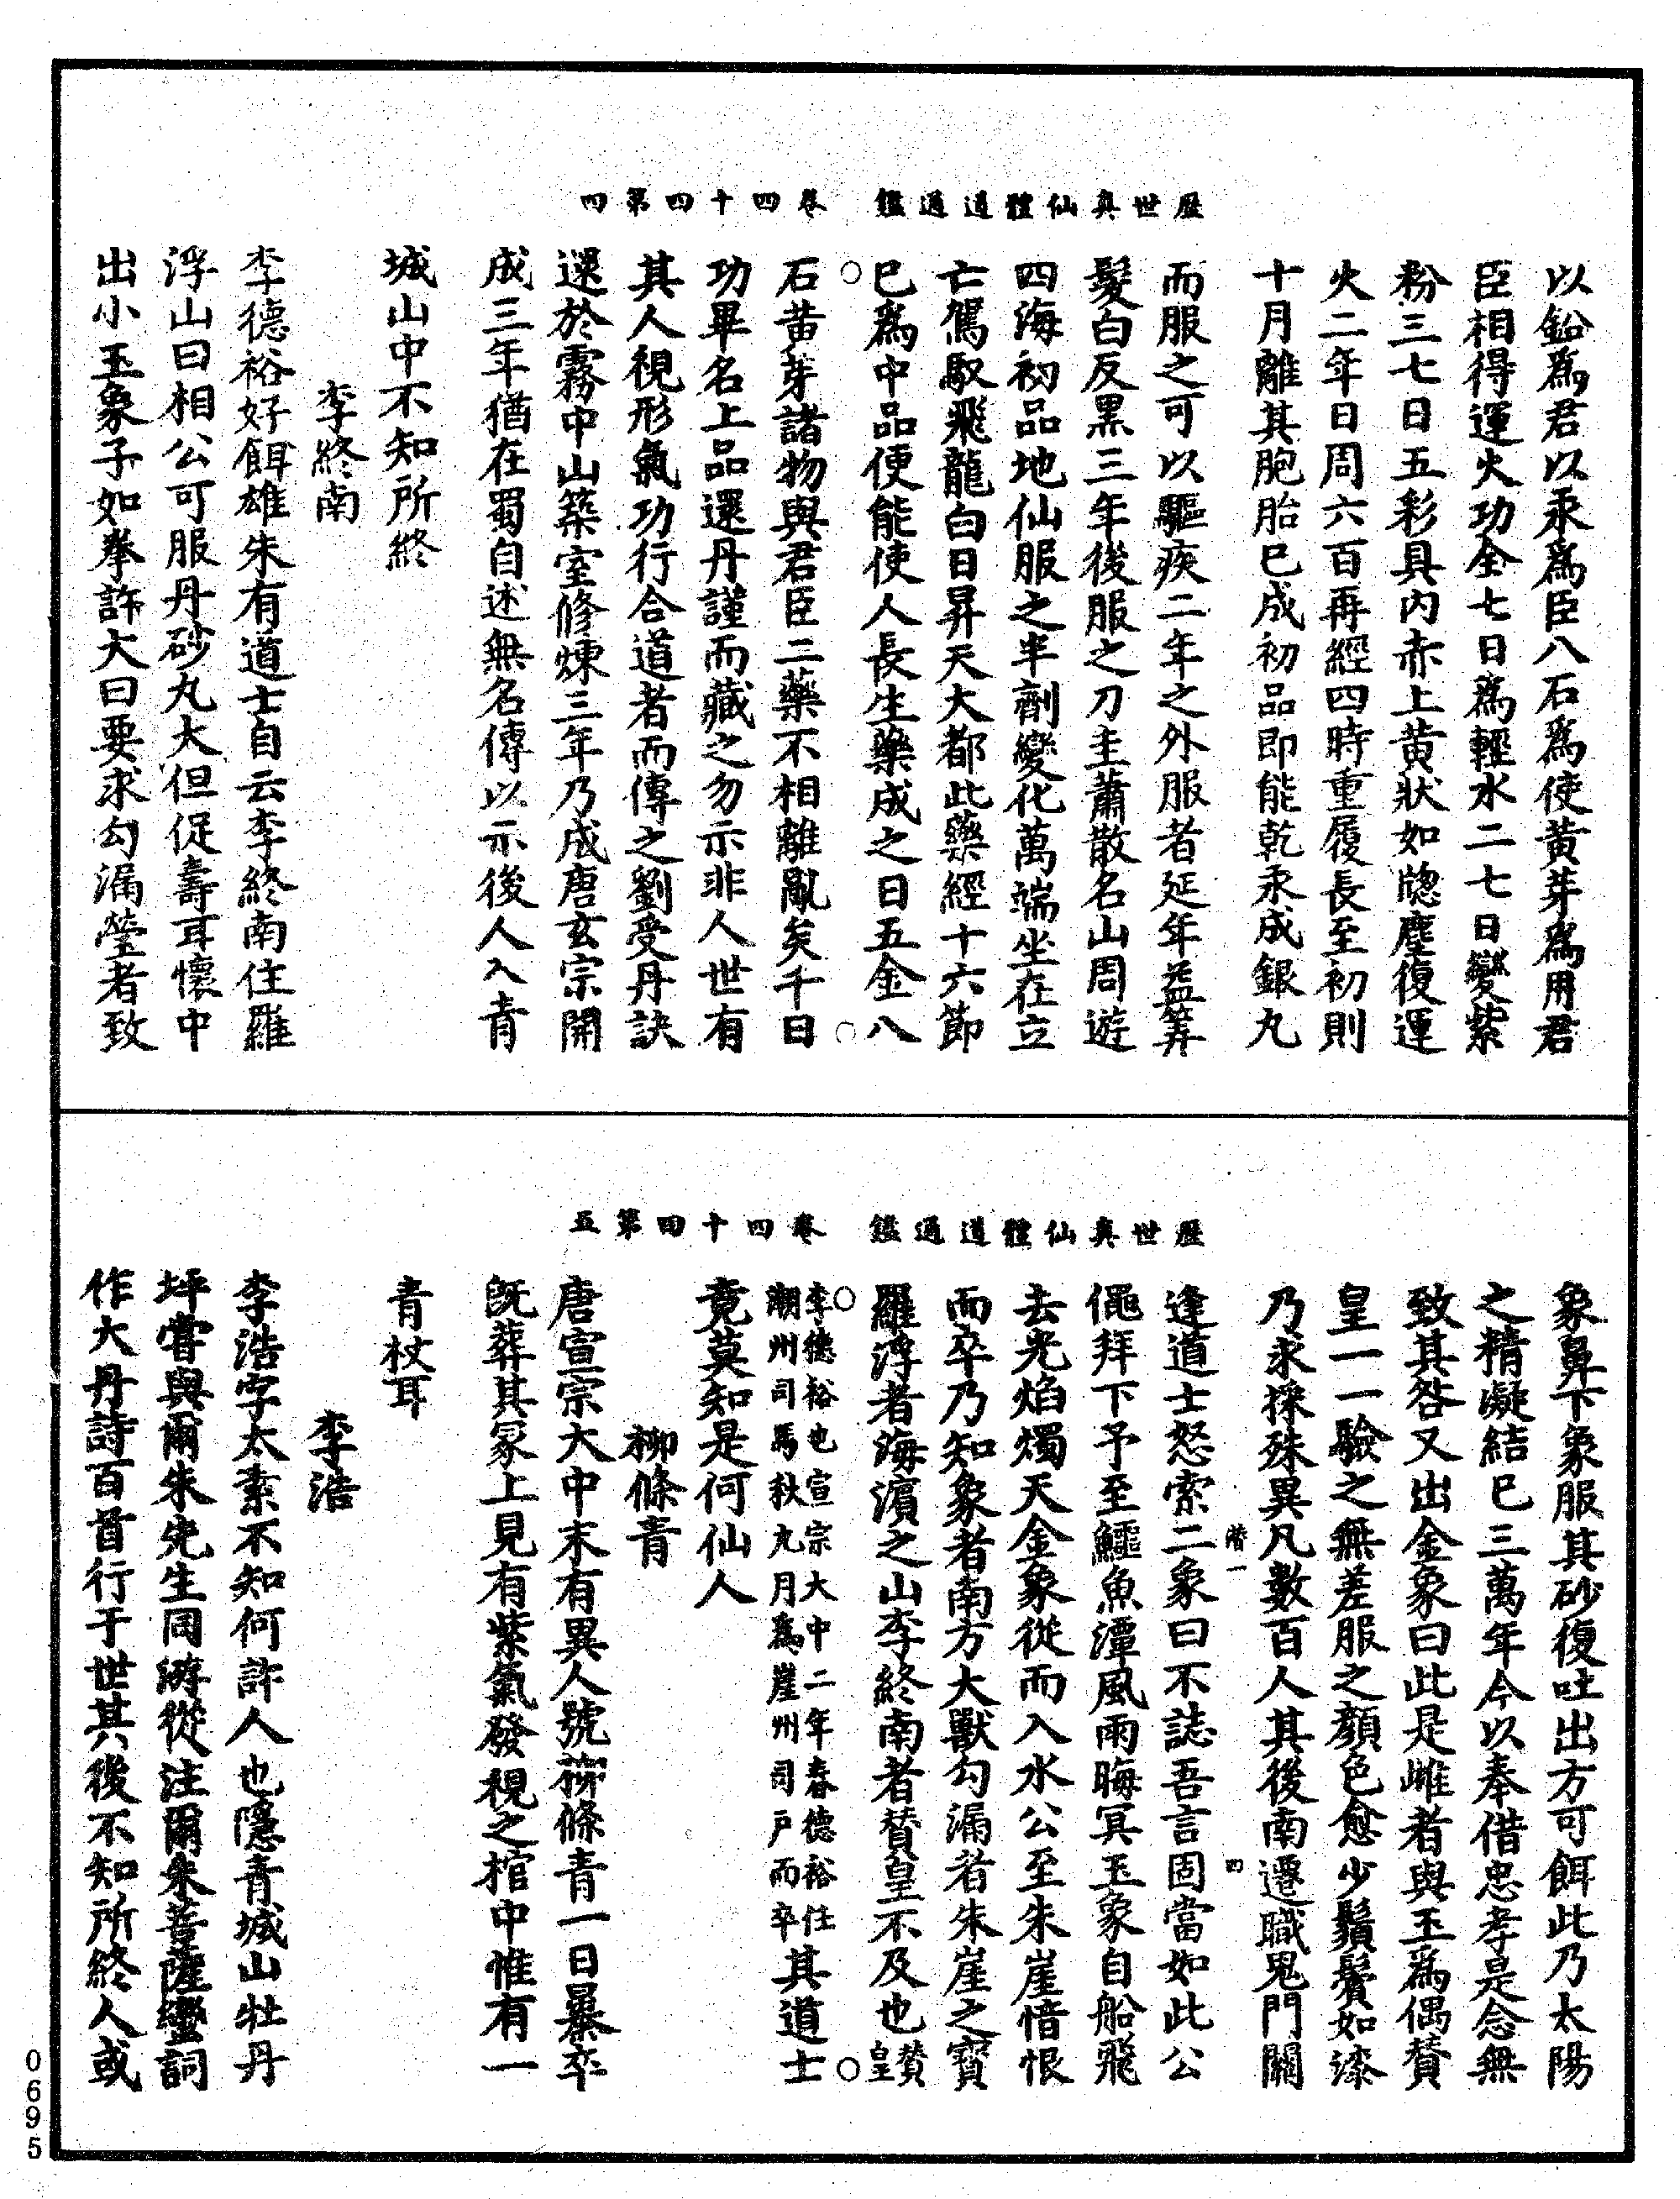 歷世真仙體道通鑑　卷四十四第四
以鉛爲君以汞爲臣八石爲使黄芽爲用君
臣相得運火功全七日爲輕水二七日變紫
粉三七日五彩具内赤上黄狀如牕塵復運
火二年日周六百再經四時重履長至初則
十月離其胞胎巳成初品即能乾汞成銀丸
而服之可以驅疾二年之外服者延年益筭
髮白反黑三年後服之刀圭蕭散名山周遊
四海初品地仙服之半劑變化萬端坐在立
亡駕馭飛龍白日昇天大都此藥經十六節
巳爲中品便能使人長生藥成之日五金八
石黄芽諸物與君臣二藥不相離亂矣千日
功畢名上品還丹謹而藏之勿示非人世有
其人視形氣功行合道者而傳之劉受丹訣
還於霧中山築室修煉三年乃成唐玄宗開
成三年猶在蜀自述無名傳以示後人入青
城山中不知所終
李終南
李德裕好餌雄朱有道士自云李終南住羅
浮山曰相公可服丹砂丸大但促壽耳懷中
出小玉象子如拳許大曰要求勾漏瑩者致
歷世真仙體道通鑑　卷四十四第五
象鼻下象服其砂復吐出方可餌此乃太陽
之精凝結巳三萬年今以奉借忠孝是念無
致其咎又出金象曰此是雌者與玉爲偶贊
皇一一驗之無差服之顔色愈少鬚鬢如漆
乃求採殊異凡數百人其後南遷職鬼門關
逢道士怒索二象曰不誌吾言固當如此公
僶拜下予至鱷魚潭風雨晦冥玉象自船飛
去光焰燭天金象從而入水公至朱崖愔恨
而卒乃知象者南方大獸勾漏者朱崖之寶
羅浮者海濵之山李終南者贊皇不及也贊皇
李德裕也宣宗大中二年春德裕任
潮州司馬秋九月爲崖州司戶而卒其道士
竟莫知是何仙人
柳條青
唐宣宗大中末有異人號栁條青一日暴卒
旣葬其冢上見有紫氣發視之棺中惟有一
青杖耳
李浩
李浩字太素不知何許人也隱青城山牡丹
坪嘗與爾朱先生同游從注爾朱菩薩蠻詞
作大丹詩百首行于世其後不知所終人或
階一
四
0695